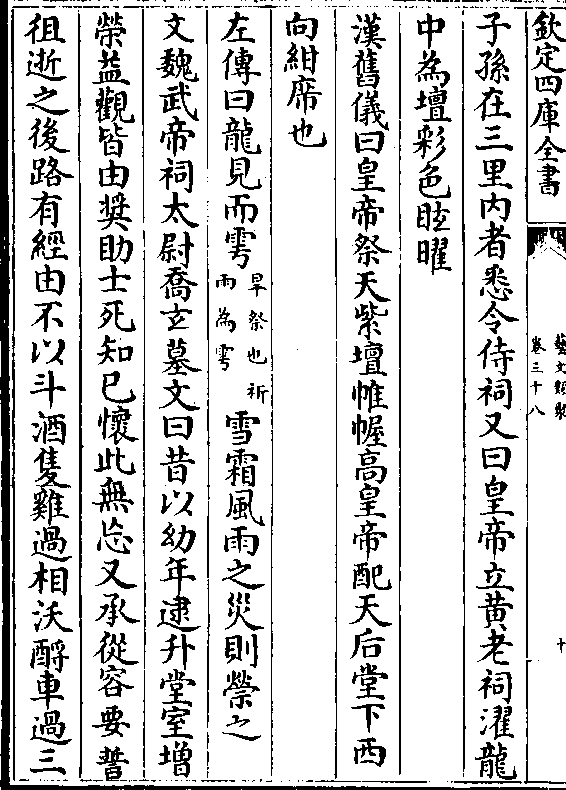 欽定四庫全書
藝文類聚
卷三十八
十
子孫在三里内者悉令侍祠又曰皇帝立黄老祠濯龍
中為壇彩色眩曜
漢舊儀曰皇帝祭天紫壇帷幄高皇帝配天后堂下西
向紺席也
左傳曰龍見而雩旱祭也祈雨為雩雪霜風雨之災則禜之
文魏武帝祠太尉喬玄墓文曰昔以幼年逮升堂室增
榮益觀皆由奨助士死知已懷此無忘又承從容要誓
徂逝之後路有經由不以斗酒隻雞過相沃酹車過三